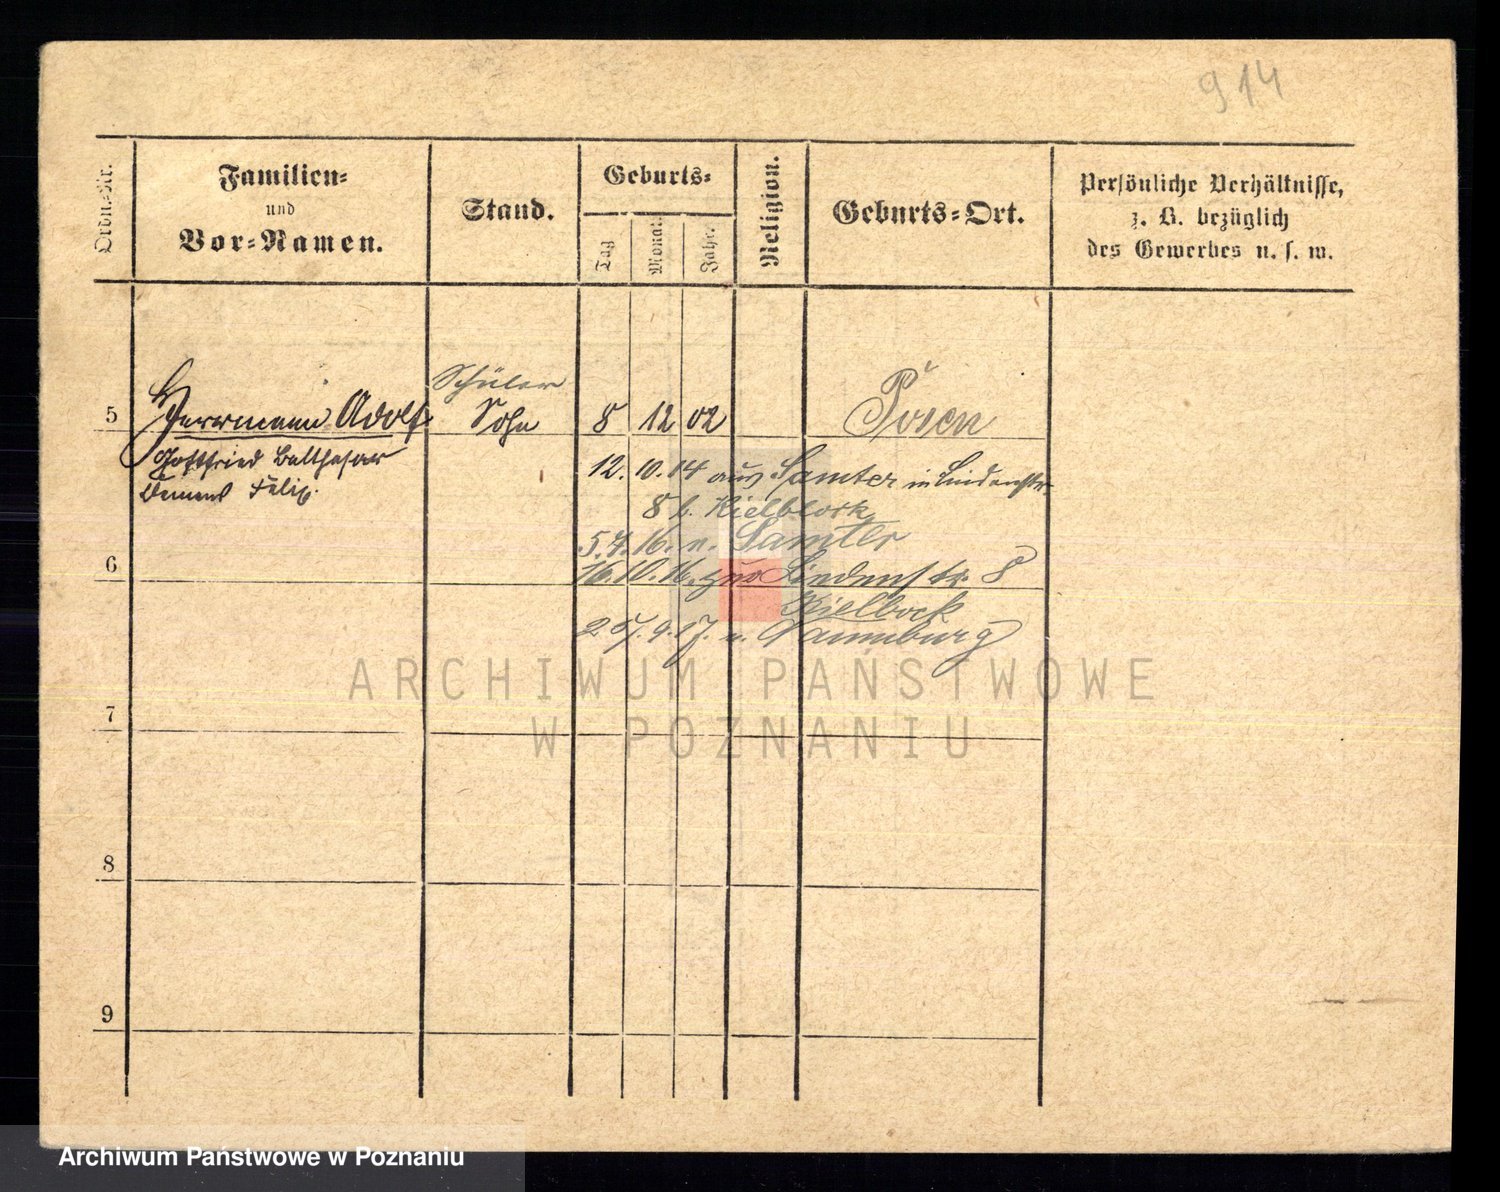 914
Ordn.-Nr.
Familien-
und
Vor-Namen.
Stand.
Geburts-
Tag
Monat
Jahr.
Religion.
Geburts-Ort.
Persönliche Verhältnisse,
z. B. bezüglich
des Gewerbes u. s. w.
Schüler
5 Herrmann Adolf Sohn 8 12 02 Posen
Gottfried Balthasar
Felix.
12. 10. 14 aus Samter in Lindenstr.
8 b. Kielblock
5.7.16. n. Samter
6
16.10.16. zur Lindenstr. 8
Kielbock
9.17. n. Naumburg
ARCHIWUM PAŃSTWOWE
W POZNANIU
7
8
9
Archiwum Państwowe w Poznaniu